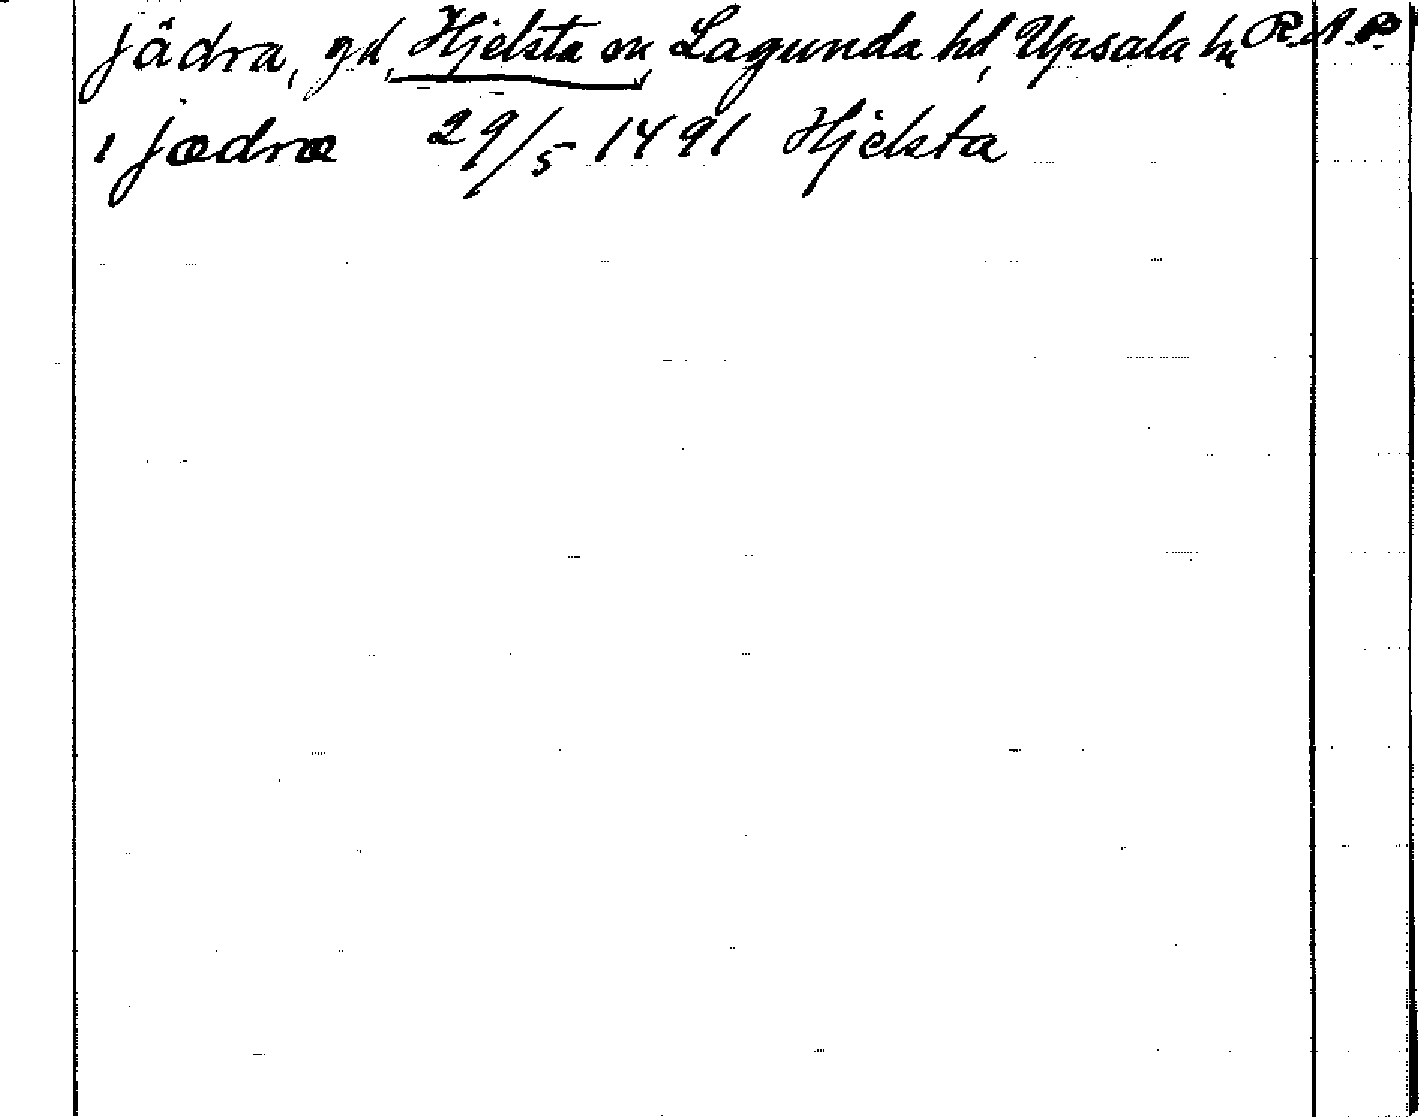 Jädra, gd, Hjelsta sn, Lagunda hd, Upsala ln R.A.P.
i Jædræ 29/5 1491 Hjelsta